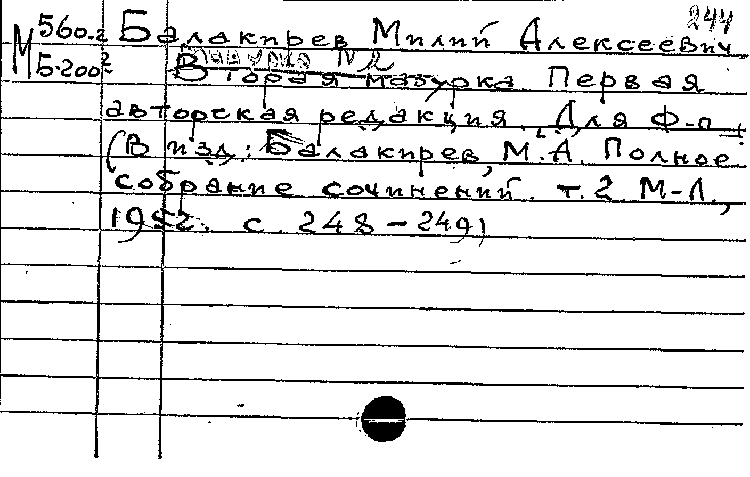 244
М 560-2 Балакирев Милий Алексеевич
Б-200² Мазурка №2
Вторая мазурка. Первая
авторская редакция. Для ф-п.
(В изд.: Балакирев, М.А. Полное
собрание сочинений. т.2 М-Л.,
1952. с. 248-249)